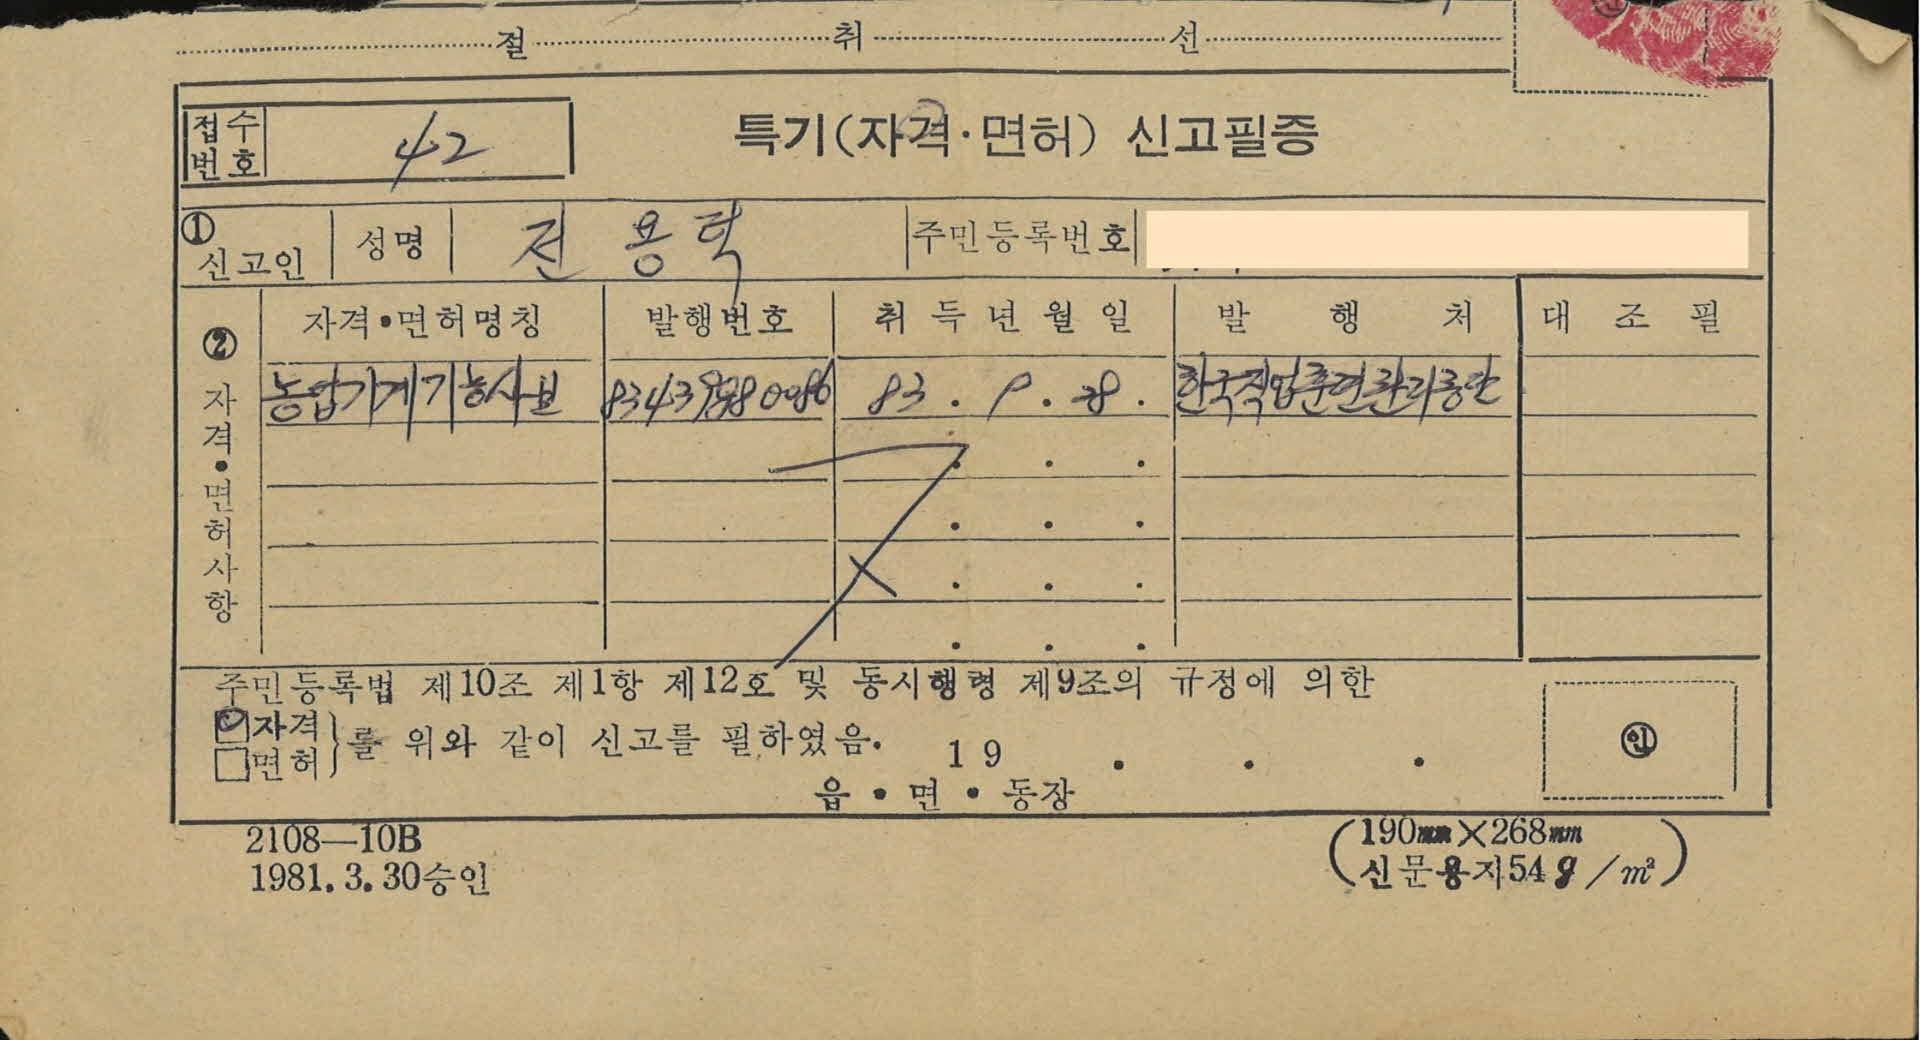 절 취 선
접수
번호
42
특기(자격·면허) 신고필증
① 신고인 성명 전용덕 주민등록번호
② 자격·면허사항
자격·면허명칭 발행번호 취득년월일 발행처 대조필
농업기계기능사보 83. 9. 28. 한국직업훈련관리공단
주민등록법 제10조 제1항 제12호 및 동시행령 제9조의 규정에 의한
자격
면허
를 위와 같이 신고를 필하였음. 19 . . .
읍·면·동장
인
2108-10B
1981. 3. 30승인
(190mm×268mm
신문용지54g/㎡)